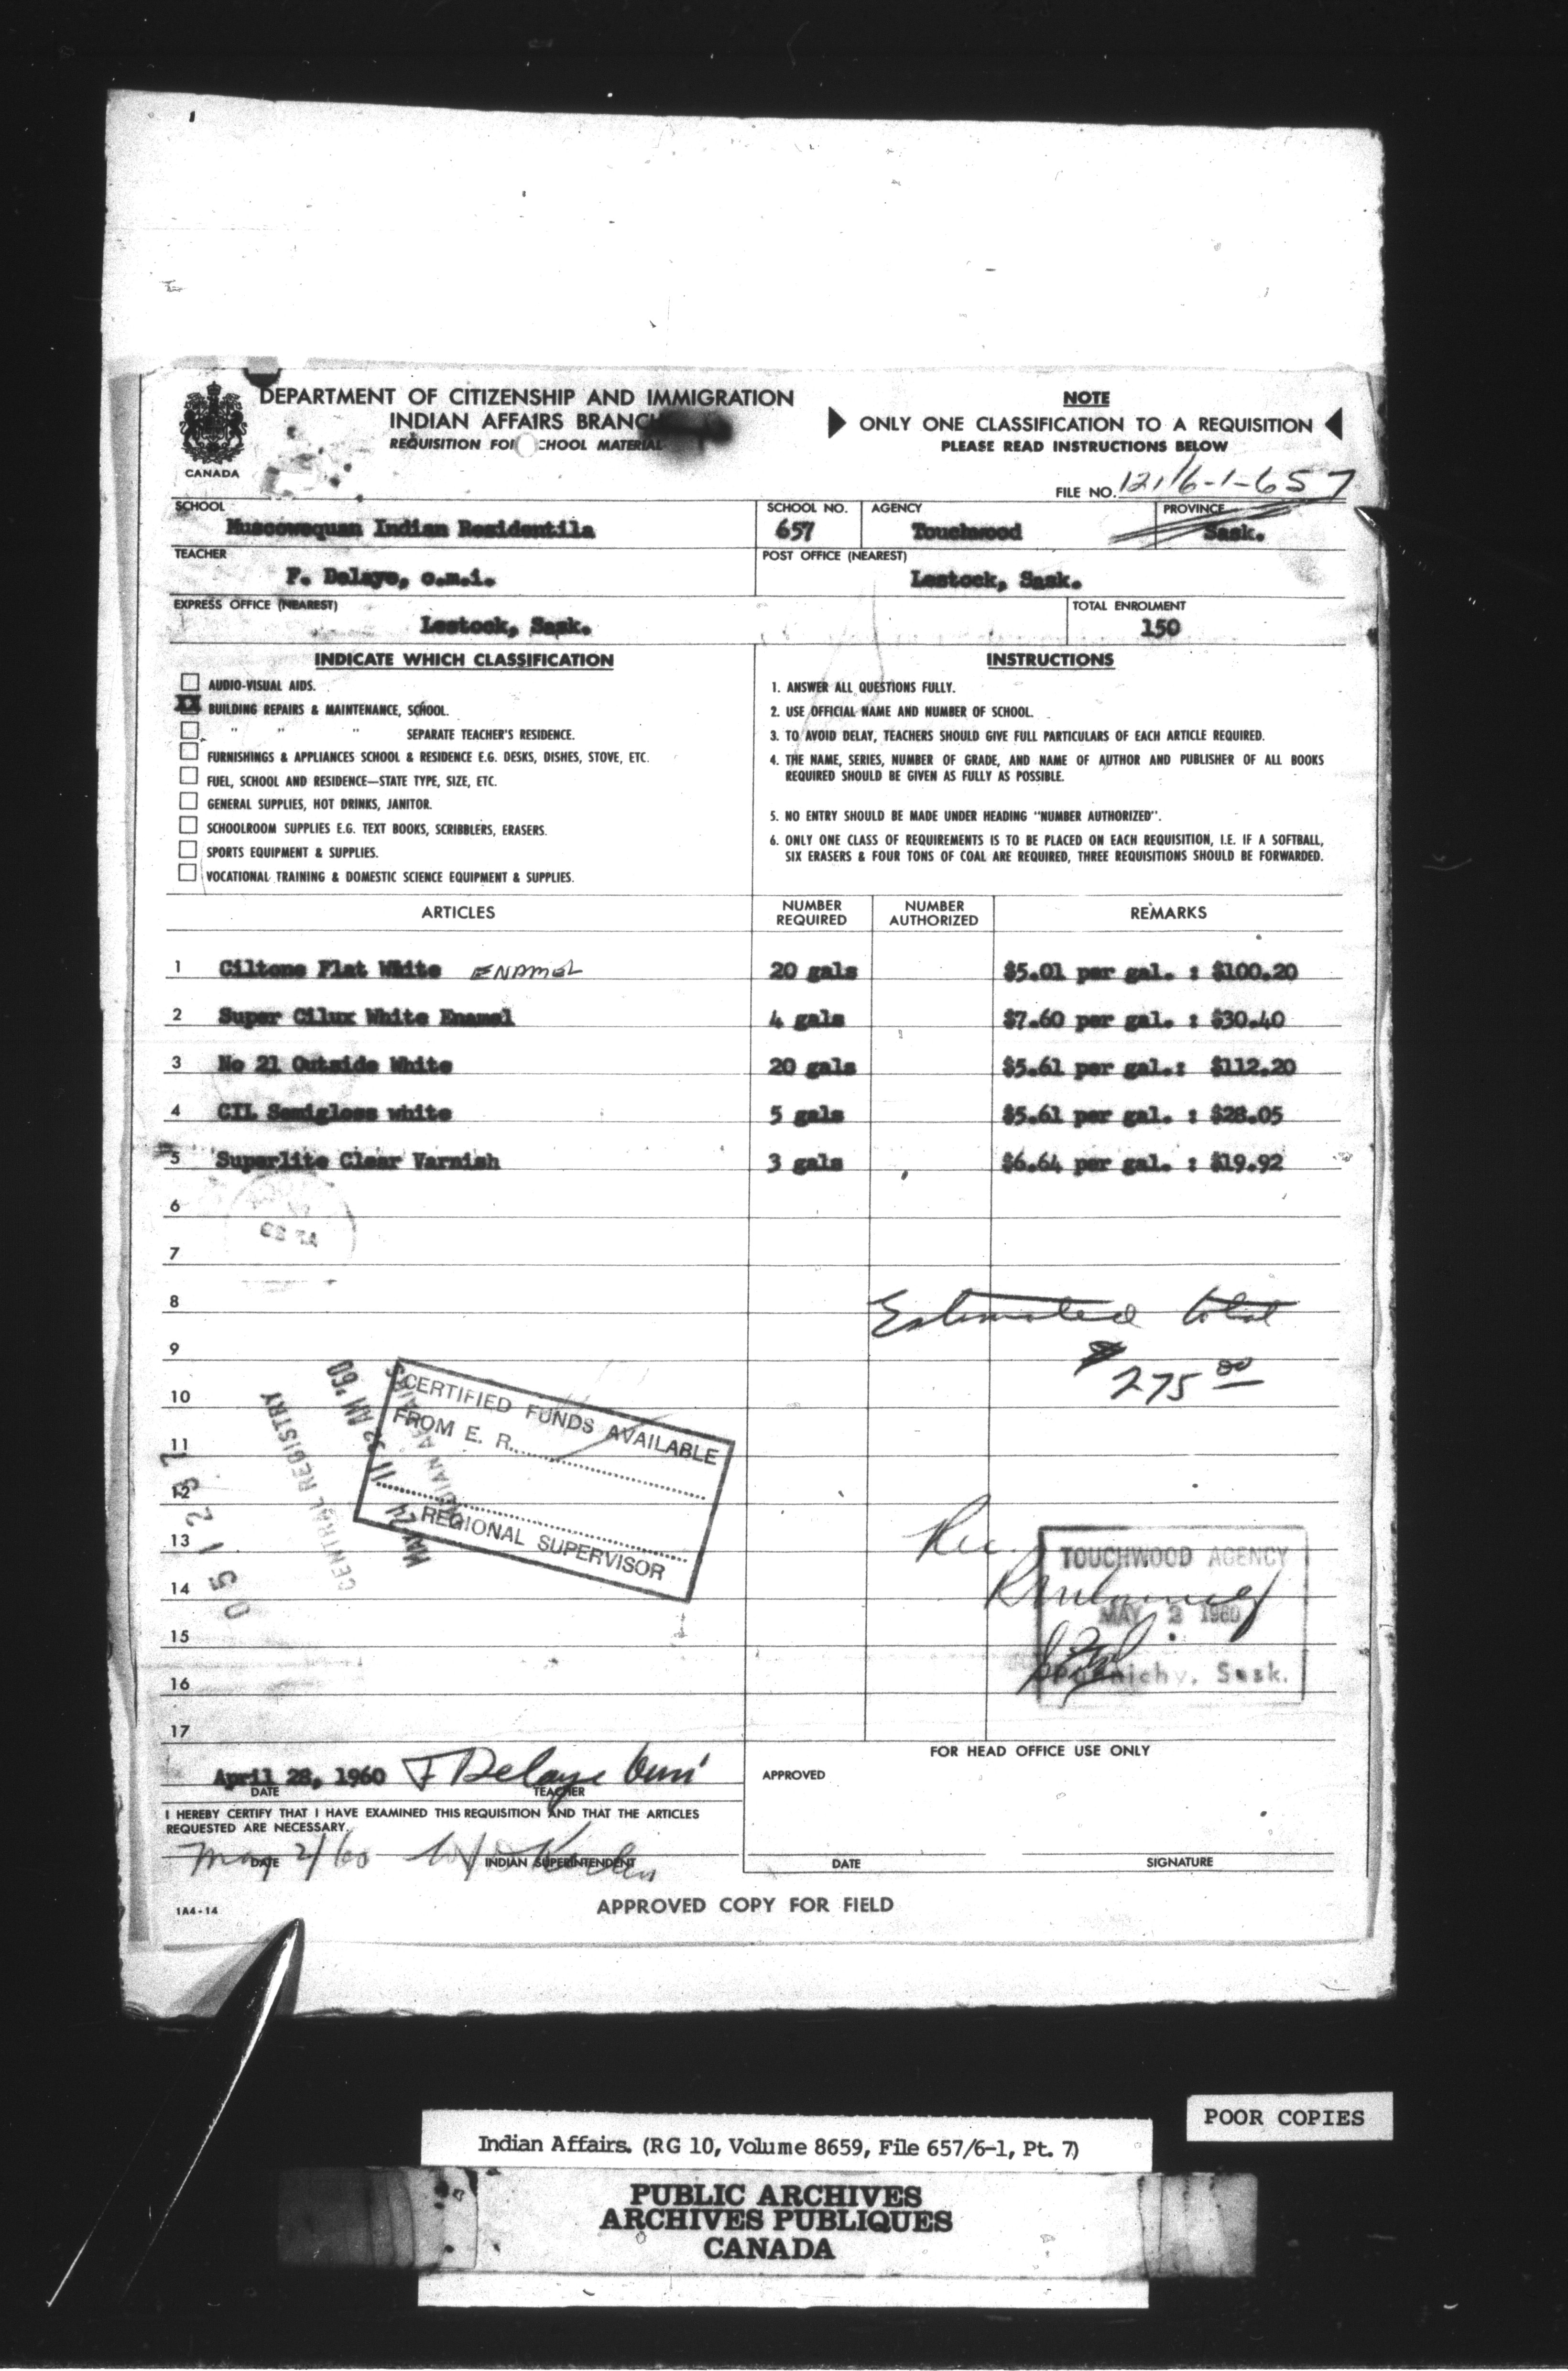 DEPARTMENT OF CITIZENSHIP AND IMMIGRATION
INDIAN AFFAIRS BRANCH
REQUISITION FOR SCHOOL MATERIAL
CANADA
NOTE
ONLY ONE CLASSIFICATION TO A REQUISITION
PLEASE READ INSTRUCTIONS BELOW
FILE NO. 121/6-1-657
SCHOOL
Muscowequan Indian Residentila
SCHOOL NO.
657
AGENCY
Touchwood
PROVINCE
Sask.
TEACHER
F. Delaye, o.m.i.
POST OFFICE (NEAREST)
Lestock, Sask.
EXPRESS OFFICE (NEAREST)
Lestock, Sask.
TOTAL ENROLMENT
150
INDICATE WHICH CLASSIFICATION
AUDIO-VISUAL AIDS.
XX BUILDING REPAIRS & MAINTENANCE, SCHOOL.
" " " SEPARATE TEACHER'S RESIDENCE.
FURNISHINGS & APPLIANCES SCHOOL & RESIDENCE E.G. DESKS, DISHES, STOVE, ETC.
FUEL, SCHOOL AND RESIDENCE—STATE TYPE, SIZE, ETC.
GENERAL SUPPLIES, HOT DRINKS, JANITOR.
SCHOOLROOM SUPPLIES E.G. TEXT BOOKS, SCRIBBLERS, ERASERS.
SPORTS EQUIPMENT & SUPPLIES.
VOCATIONAL TRAINING & DOMESTIC SCIENCE EQUIPMENT & SUPPLIES.
INSTRUCTIONS
1. ANSWER ALL QUESTIONS FULLY.
2. USE OFFICIAL NAME AND NUMBER OF SCHOOL.
3. TO AVOID DELAY, TEACHERS SHOULD GIVE FULL PARTICULARS OF EACH ARTICLE REQUIRED.
4. THE NAME, SERIES, NUMBER OF GRADE, AND NAME OF AUTHOR AND PUBLISHER OF ALL BOOKS
REQUIRED SHOULD BE GIVEN AS FULLY AS POSSIBLE.
5. NO ENTRY SHOULD BE MADE UNDER HEADING "NUMBER AUTHORIZED".
6. ONLY ONE CLASS OF REQUIREMENTS IS TO BE PLACED ON EACH REQUISITION, I.E. IF A SOFTBALL,
SIX ERASERS & FOUR TONS OF COAL ARE REQUIRED, THREE REQUISITIONS SHOULD BE FORWARDED.
ARTICLES NUMBER REQUIRED NUMBER AUTHORIZED REMARKS
1 Ciltone Flat White ENAMEL 20 gals $5.01 per gal. : $100.20
2 Super Cilux White Enamel 4 gals $7.60 per gal. : $30.40
3 No 21 Outside White 20 gals $5.61 per gal.: $112.20
4 CIL Semigloss white 5 gals $5.61 per gal. : $28.05
5 Superlite Clear Varnish 3 gals $6.64 per gal. : $19.92
6
7
8 Estimated total
9 $275 00
10
11
12
13
14
15
16
17
CERTIFIED FUNDS AVAILABLE
FROM E. R.
REGIONAL SUPERVISOR
INDIAN AFFAIRS
MAY 24 11 32 AM '60
CENTRAL REGISTRY
051237
Rec.
TOUCHWOOD AGENCY
MAY 2 1960
Punnichy, Sask.
April 28, 1960 F Delaye omi
DATE TEACHER
I HEREBY CERTIFY THAT I HAVE EXAMINED THIS REQUISITION AND THAT THE ARTICLES
REQUESTED ARE NECESSARY.
May 2/60
DATE INDIAN SUPERINTENDENT
FOR HEAD OFFICE USE ONLY
APPROVED
DATE SIGNATURE
1A4-14
APPROVED COPY FOR FIELD
POOR COPIES
Indian Affairs. (RG 10, Volume 8659, File 657/6-1, Pt. 7)
PUBLIC ARCHIVES
ARCHIVES PUBLIQUES
CANADA